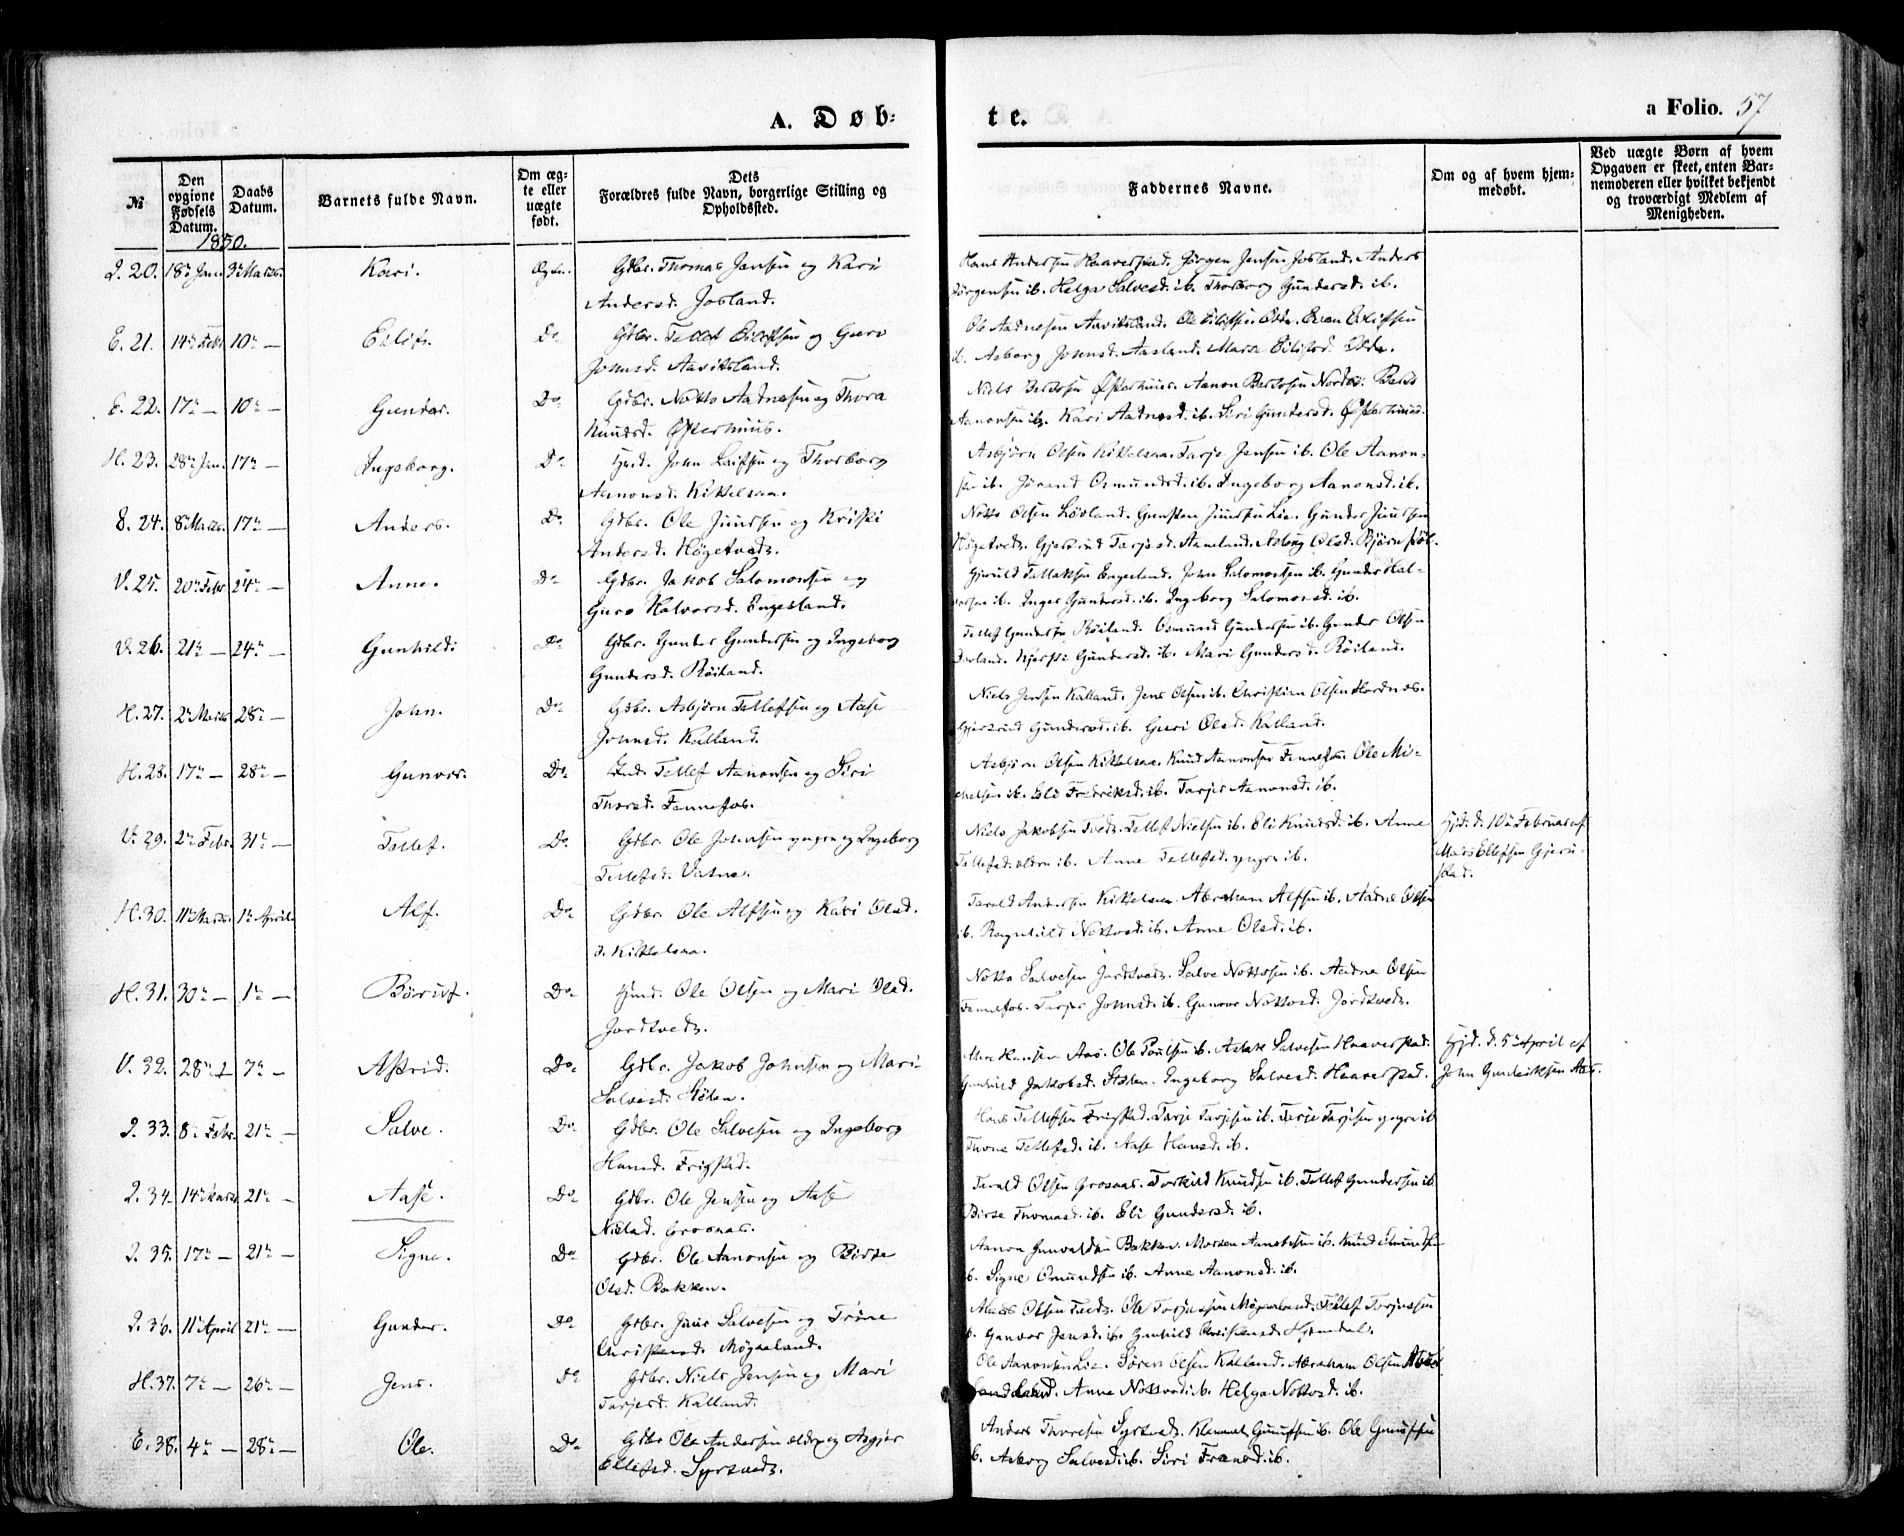 A. Døb-
te.
a Folio. 57
№
Den opgivne Fødsels Datum.
Daabs Datum.
Barnets fulde Navn.
Om ægte eller uægte født.
Dets Forældres fulde Navn, borgerlige Stilling og Opholdssted.
Faddernes Navne.
Om og af hvem hjemmedøbt.
Ved uægte Børn af hvem Opgaven er skeet, enten Barnemoderen eller hvilket bekjendt og troværdigt Medlem af Menigheden.
1850.
I. 20. 18de Jan. 3de Marts. Kari. Ægte. Gdbr. Thomas Jensen og Kari
Andersd. Josland.
Hans Andersen Haaverstad. Jørgen Jensen Josland. Anders
Jørgensen ib. Helga Salvesd. ib. Thorborg Gundersd. ib.
E. 21. 14de Febr. 10de — Eilif. Do Gdbr. Tellef Eilifsen og Guro
Jonsd. Aavitsland.
Ole Aadnesen Aavitsland. Ole Eilifsen Odde. Even Eilifsen
ib. Asborg Jonsd. Aasland. Marte Eilifsd. Odde.
E. 22. 17de — 10de — Gunder. Do Gdbr. Notto Aadnesen og Thora
Knudsd. Østerhuus.
Niels Bertosen Østerhuus. Aanon Bertosen
Aanonsen ib. Kari Aadnesd. ib. Siri Gundersd. Østerhuus.
H. 23. 28de Jan. 17de — Ingeborg. Do Hmd. John Leifsen og Thorborg
Aanonsd. Kittelsaa.
Asbjørn Olsen Kittelsaa. Tarje Jensen ib. Ole Aanon-
sen ib. Jórand Osmundsd. ib. Ingeborg Aanonsd. ib.
24. 8de Marts. 17de — Anders. Do Gdbr. Ole Juursen og Kristi
Andersd. Høgetvedt.
Notto Olsen Løvland. Gunsten Juursen Lie. Gunder Juursen
Høgetvedt. Gjertrud Tarjesd. Aaneland. Asborg Olsd.
V. 25. 20de Febr. 24de — Anne. Do Gdbr. Jakob Salomonsen og
Guro Halvorsd. Engesland.
Gjeruld Tellaksen Engesland. John Salomonsen ib. Gunder Hal-
vorsen ib. Inger Gundersd. ib. Ingeborg Salomonsd. ib.
V. 26. 21de — 24de — Gunhild. Do Gdbr. Gunder Gundersen og Ingeborg
Gundersd. Røiland.
Tellef Gundersen Røiland. Osmund Gundersen ib. Gunder Olsen
Kjersti Gundersd. ib. Mari Gundersd. Røiland.
H. 27. 2de Marts 28de — John. Do Gdbr. Asbjørn Tellefsen og Aase
Jonsd. Kalland.
Niels Jensen Kalland. Jens Olsen ib. Christian Olsen Hordnæs.
Gjertrud Gundersd. ib. Guri Olsd. Kalland.
H. 28. 17de — 28de — Gunvor. Do Ind. Tellef Aanonsen og Siri
Thorsd. Fennefos.
Asbjørn Olsen Kittelsaa. Knud Aanonsen Fennefos. Ole Mi-
chelsen ib. Eli Fredriksd. ib. Tarjer Aanonsd. ib.
V. 29. 2de Febr. 31te — Tellef. Do Gdbr. Ole Johnsen yngre og Ingeborg
Tellefsd. Vatne.
Niels Jakobsen Tvedt. Tellef Nielsen ib. Eli Knudsd. ib. Anne
Tellefsd. ældre ib. Anne Tellefsd. yngre ib.
Hjd. d. 10de Februar af
Mads Ellefsen Gjeru-
stad.
H. 30. 11te Marts. 1te April. Alf. Do Gdbr. Ole Alfsen og Kari Olsd.
Kittelsaa.
Tarald Andersen Kittelsaa. Abraham Alfsen ib. Aadne Olsen
ib. Ragnhild Nottosd. ib. Anne Olsd. ib.
H. 31. 30te — 1te — Børuf. Do Hmd. Ole Olsen og Mari Olsd.
Jordtvedt.
Notto Salvesen Jordtvedt. Salve Nottosen ib. Aadne Olsen
Fennefos. Tarjer Jonsd. ib. Gunvor Nottosd. Jordtvedt.
V. 32. 28de 7de — Astrid. Do Gdbr. Jakob Johnsen og Mari
Salvesd. Stølen.
Hansen Aas. Ole Poulsen ib. Aslak Salvesen Haaverstad.
Gunhild Jakobsd. Stølen. Ingeborg Salvesd. Haaverstad.
Hjd. d. 5te April af
John Gundersen Aas.
I. 33. 8de Febr. 21de — Salve. Do Gdbr. Ole Salvesen og Ingeborg
Hansd. Frigstad.
Hans Tellefsen Frigstad. Tarje Tarjesen ib. Terje Tarjesen yngre ib
Thone Tellefsd. ib. Aase Hansd. ib.
I. 34. 14de Marts 21de — Aase. Do Gdbr. Ole Jensen og Aase
Nielsd. Grosnæs.
Tarald Olsen Grosnæs. Torkild Knudsen ib. Tellef Gundersen ib.
Birte Thomasd. ib. Eli Gundersd. ib.
I. 35. 17de — 21de — Signe. Do Gdbr. Ole Aanonsen og Birte
Olsd. Bakken.
Aanon Gunvaldsen Bakken. Morten Aanonsen ib.
ib. Signe Omundsen ib. Anne Aanonsd. ib.
I. 36. 11te April 21de — Gunder. Do Gdbr. Juur Salvesen og Thone
Christensd. Møgaaland.
Olsen Tvedt. Ole Torjussen Møgaaland. Tellef Torjussen
ib. Gunvor Jensd. ib. Gunhild Christensd. Hjemdal.
H. 37. 7de — 26de — Jens. Do Gdbr. Niels Jensen og Mari
Tarjesd. Kalland.
Ole Aanonsen Lie. Søren Olsen Kalland. Abraham Olsen
Anne Nottosd. ib. Helga Nottosd. ib.
E. 38. 4de — 28de — Ole. Do Gdbr. Ole Andersen ældre og Asgjer
Ellefsd. Syrtvedt.
Anders Thorsen Syrtvedt. Klemmet Gunufsen ib. Ole Gunufsen
ib. Asborg Salvesd. ib. Siri Fransd. ib.